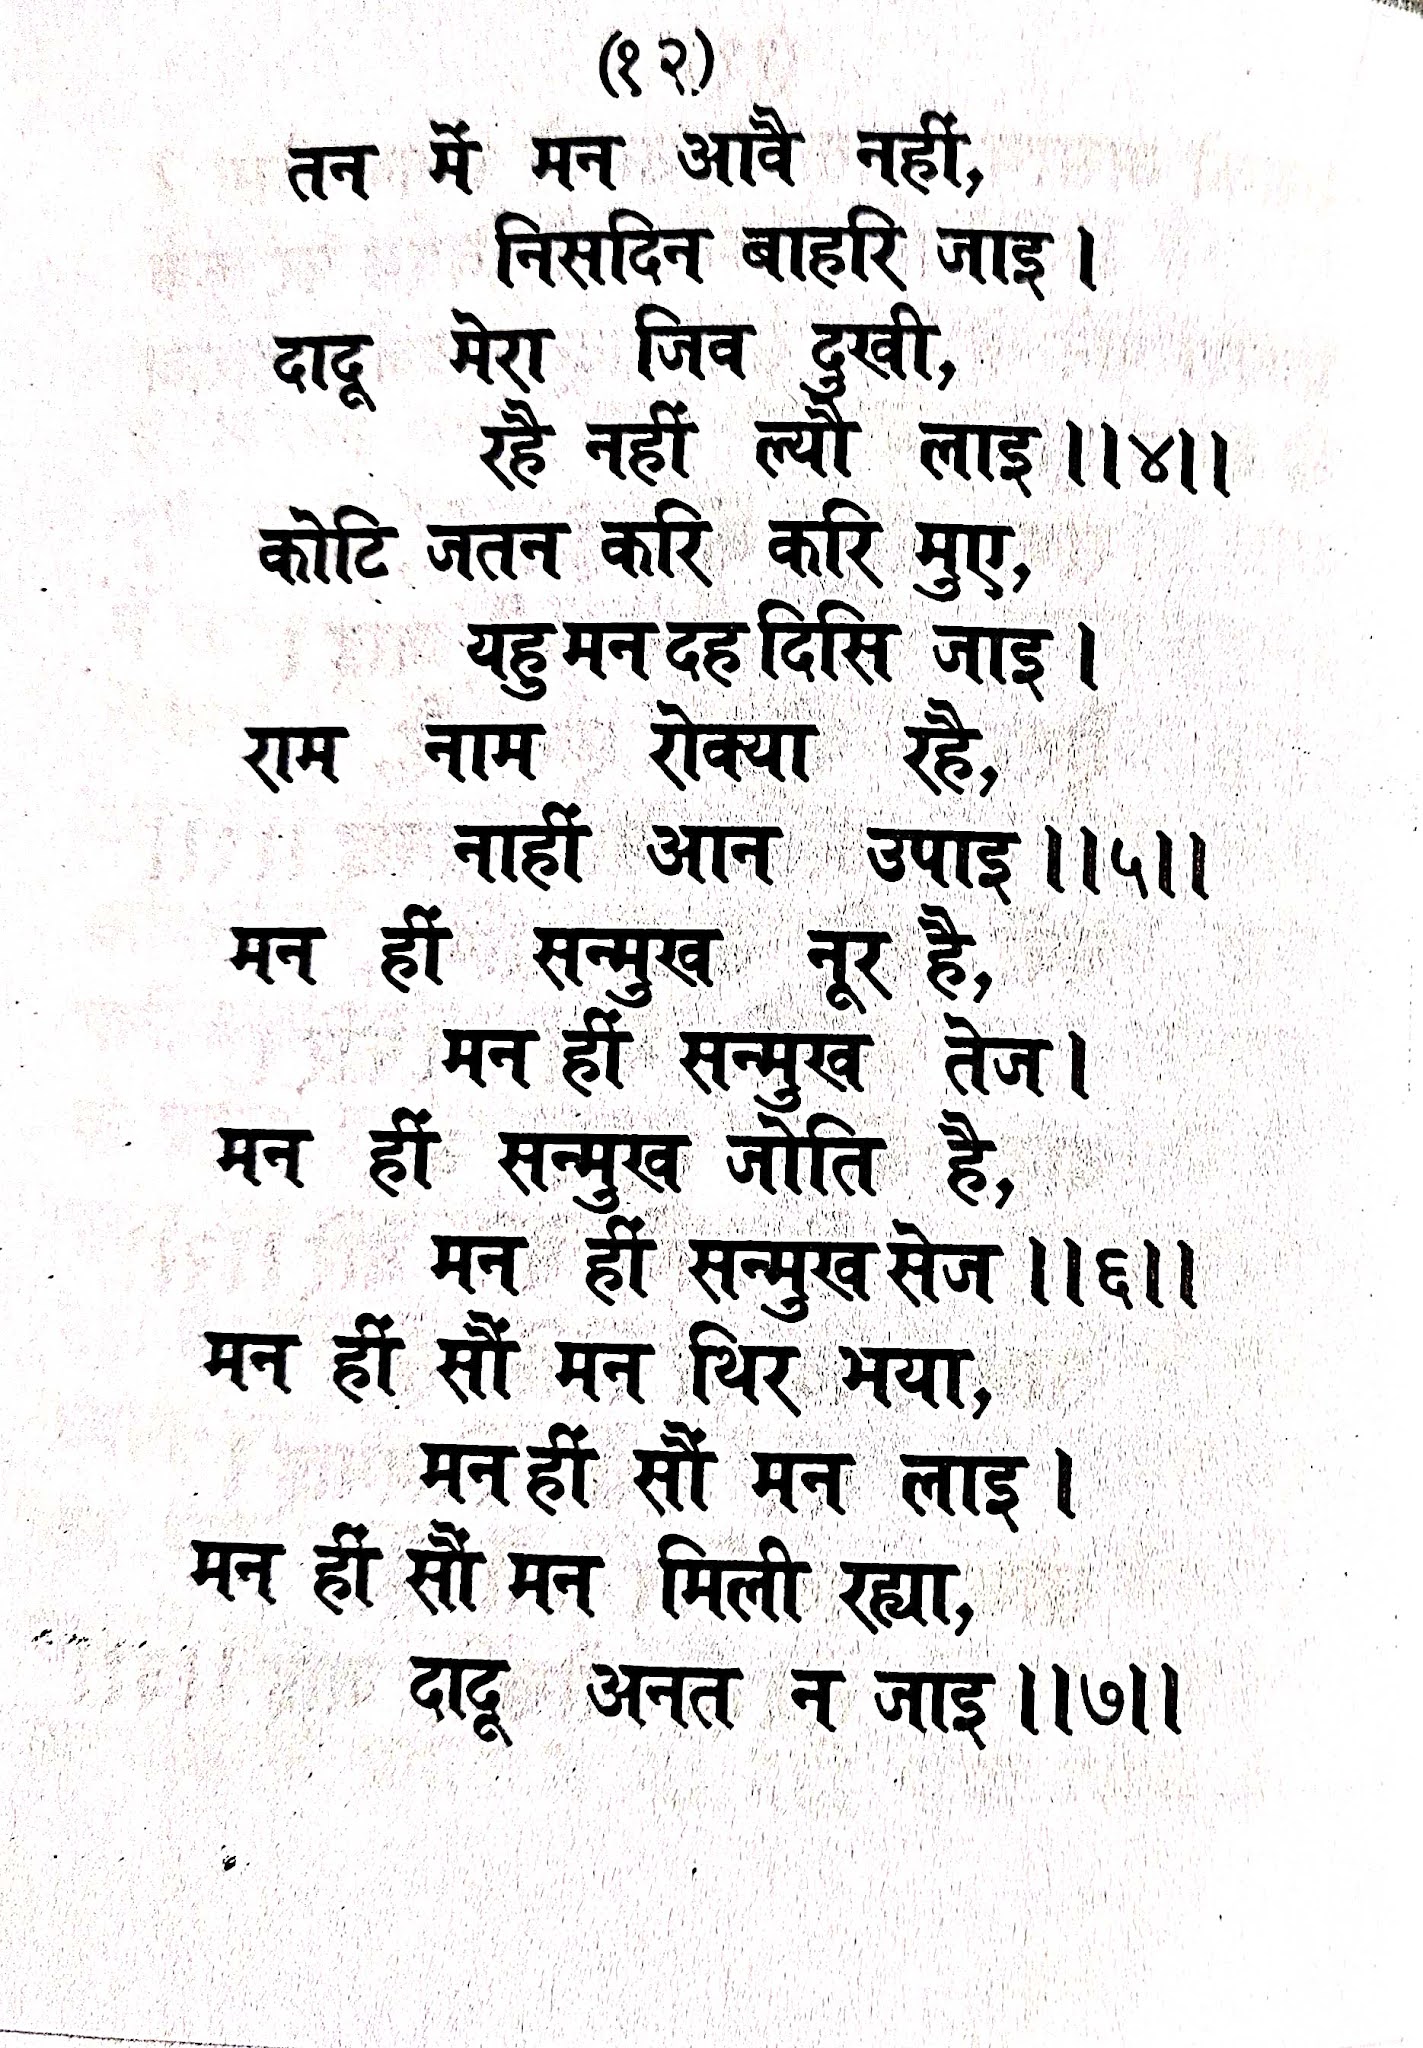 (१२)
तन में मन आवै नहीं,
निसदिन बाहरि जाइ।
दादू मेरा जिव दुखी,
रहै नहीं ल्यौ लाइ।।४।।
कोटि जतन करि करि मुए,
यहु मन दह दिसि जाइ।
राम नाम रोक्या रहै,
नाहीं आन उपाइ।।५।।
मन हीं सन्मुख नूर है,
मन हीं सन्मुख तेज।
मन हीं सन्मुख जोति है,
मन हीं सन्मुख सेज।।६।।
मन हीं सौं मन थिर भया,
मन हीं सौं मन लाइ।
मन हीं सौं मन मिली रह्या,
दादू अनत न जाइ।।७।।